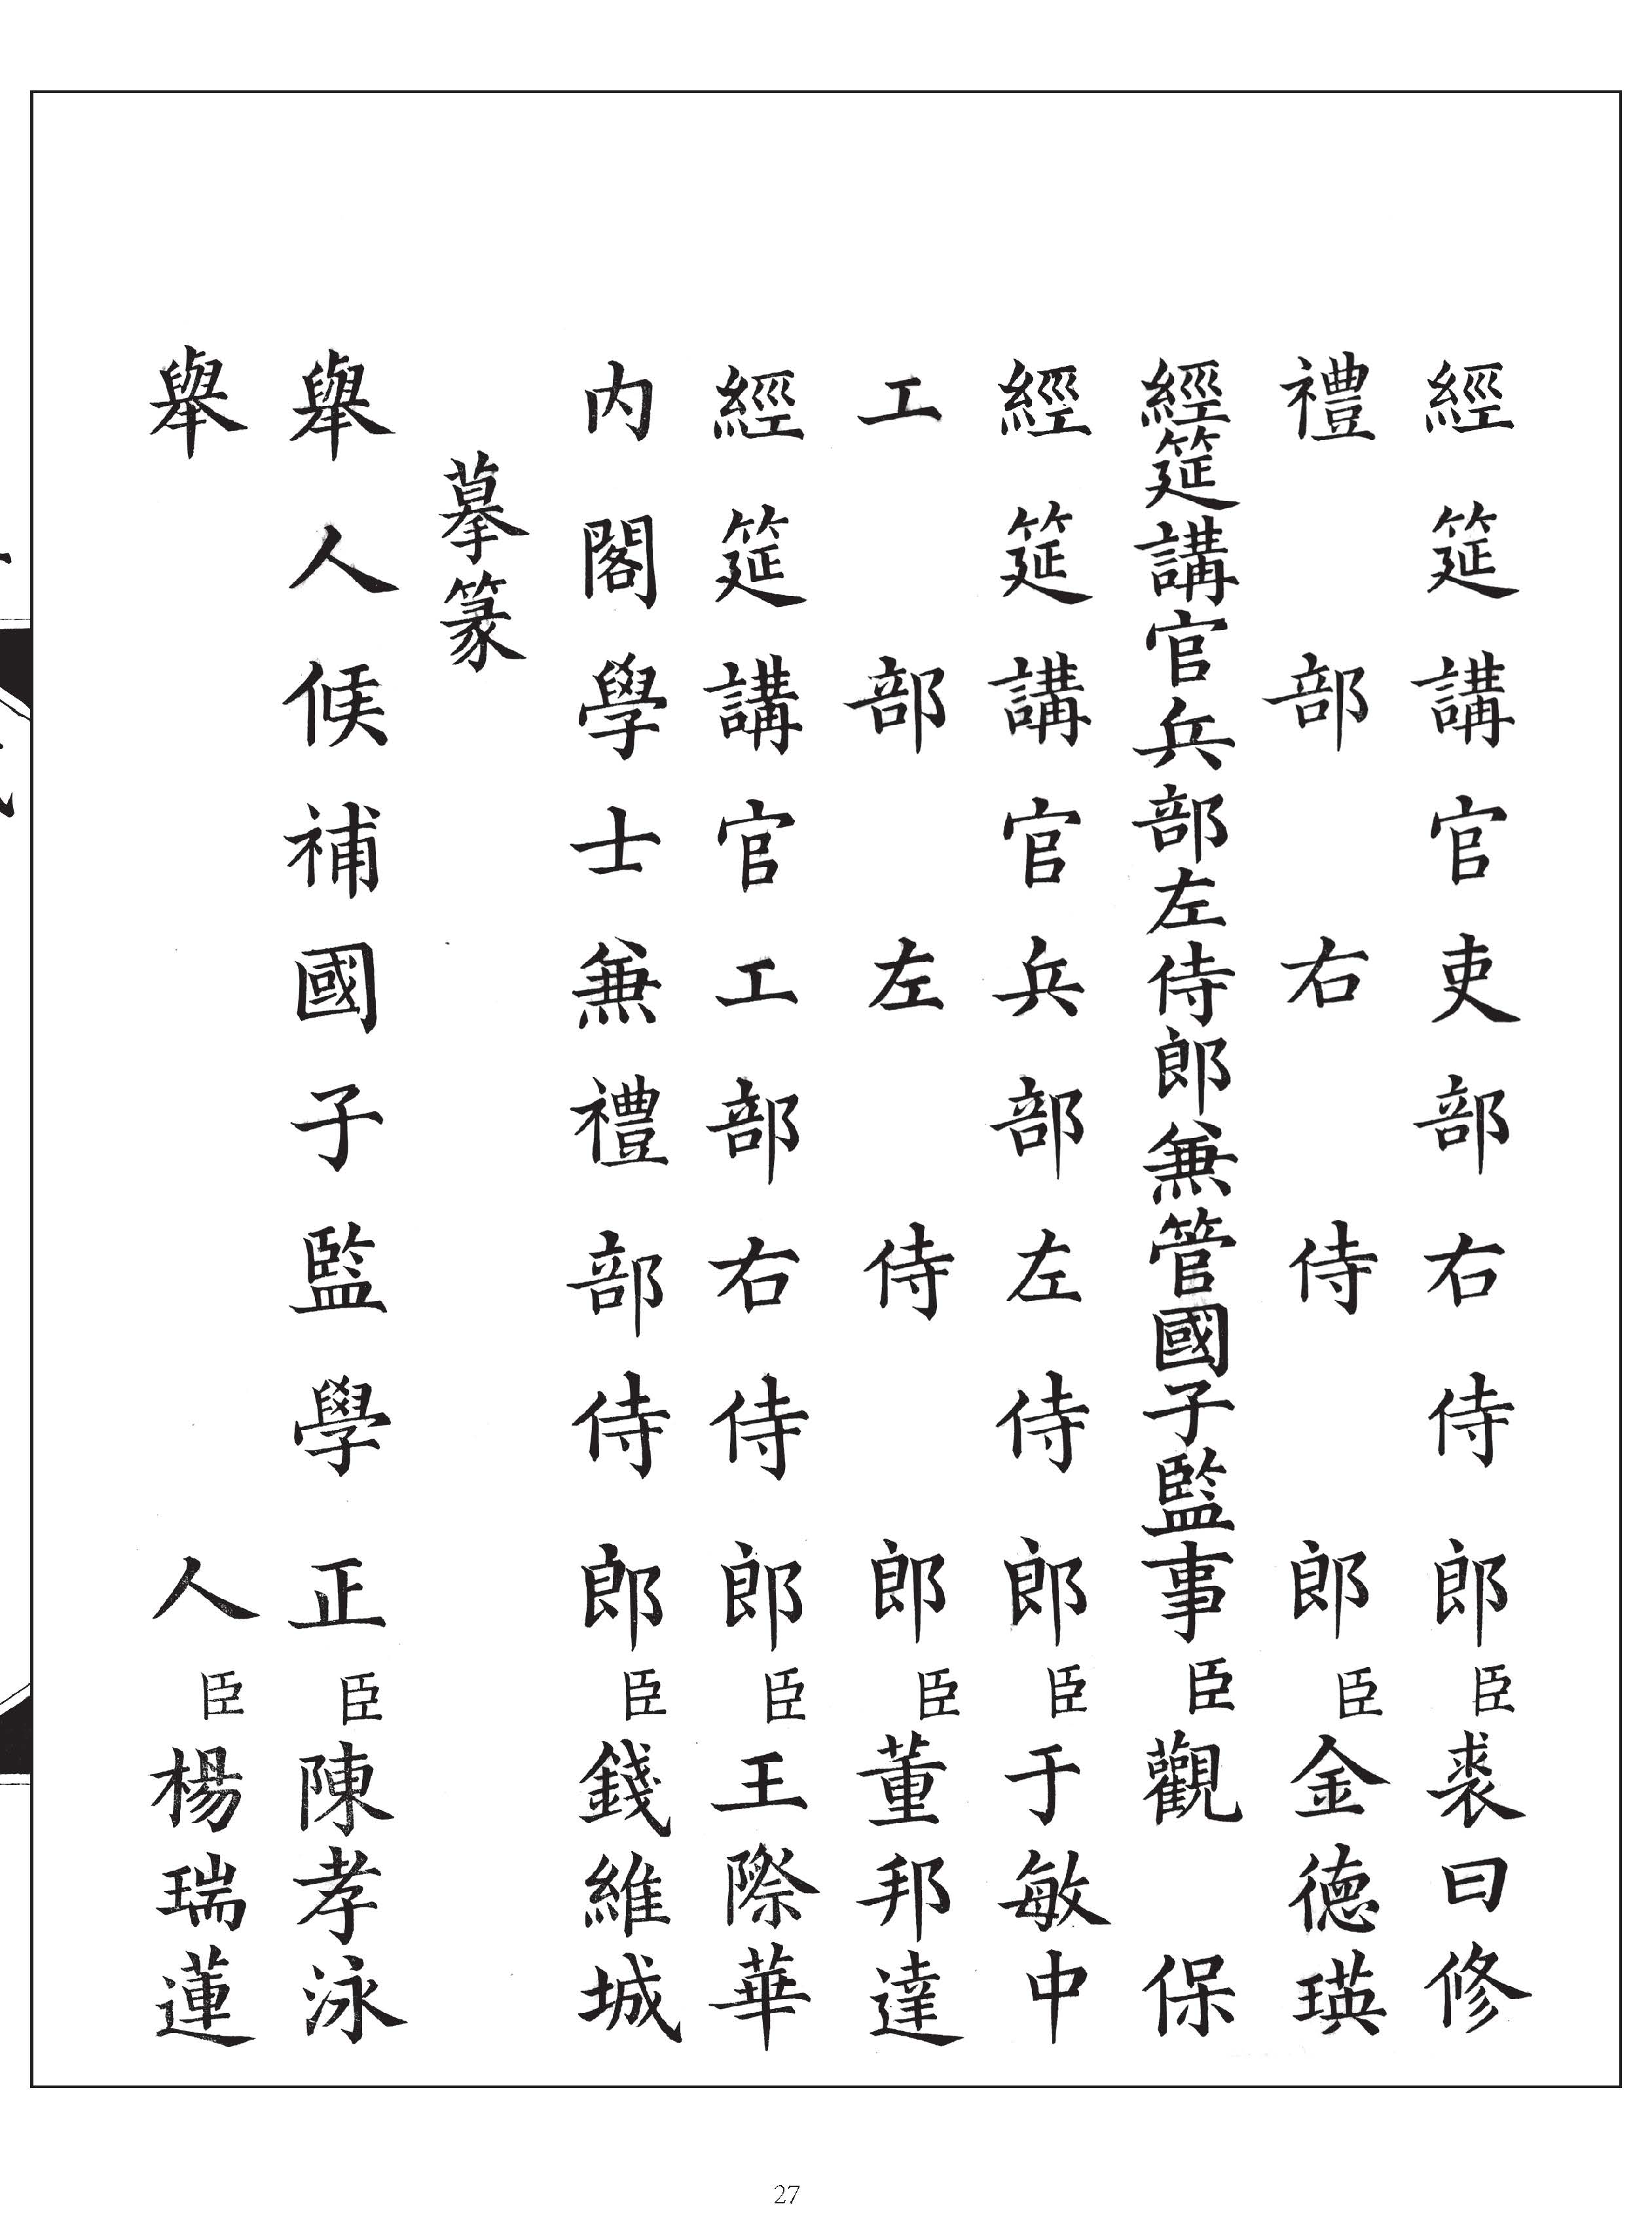 經筵講官吏部右侍郎臣裘曰修
禮部右侍郎臣金德瑛
經筵講官兵部左侍郎兼管國子監事臣觀保
經筵講官兵部左侍郎臣于敏中
工部左侍郎臣董邦達
經筵講官工部右侍郎臣王際華
内閣學士兼禮部侍郎臣錢維城
摹篆
舉人候補國子監學正臣陳孝泳
舉人臣楊瑞蓮
27